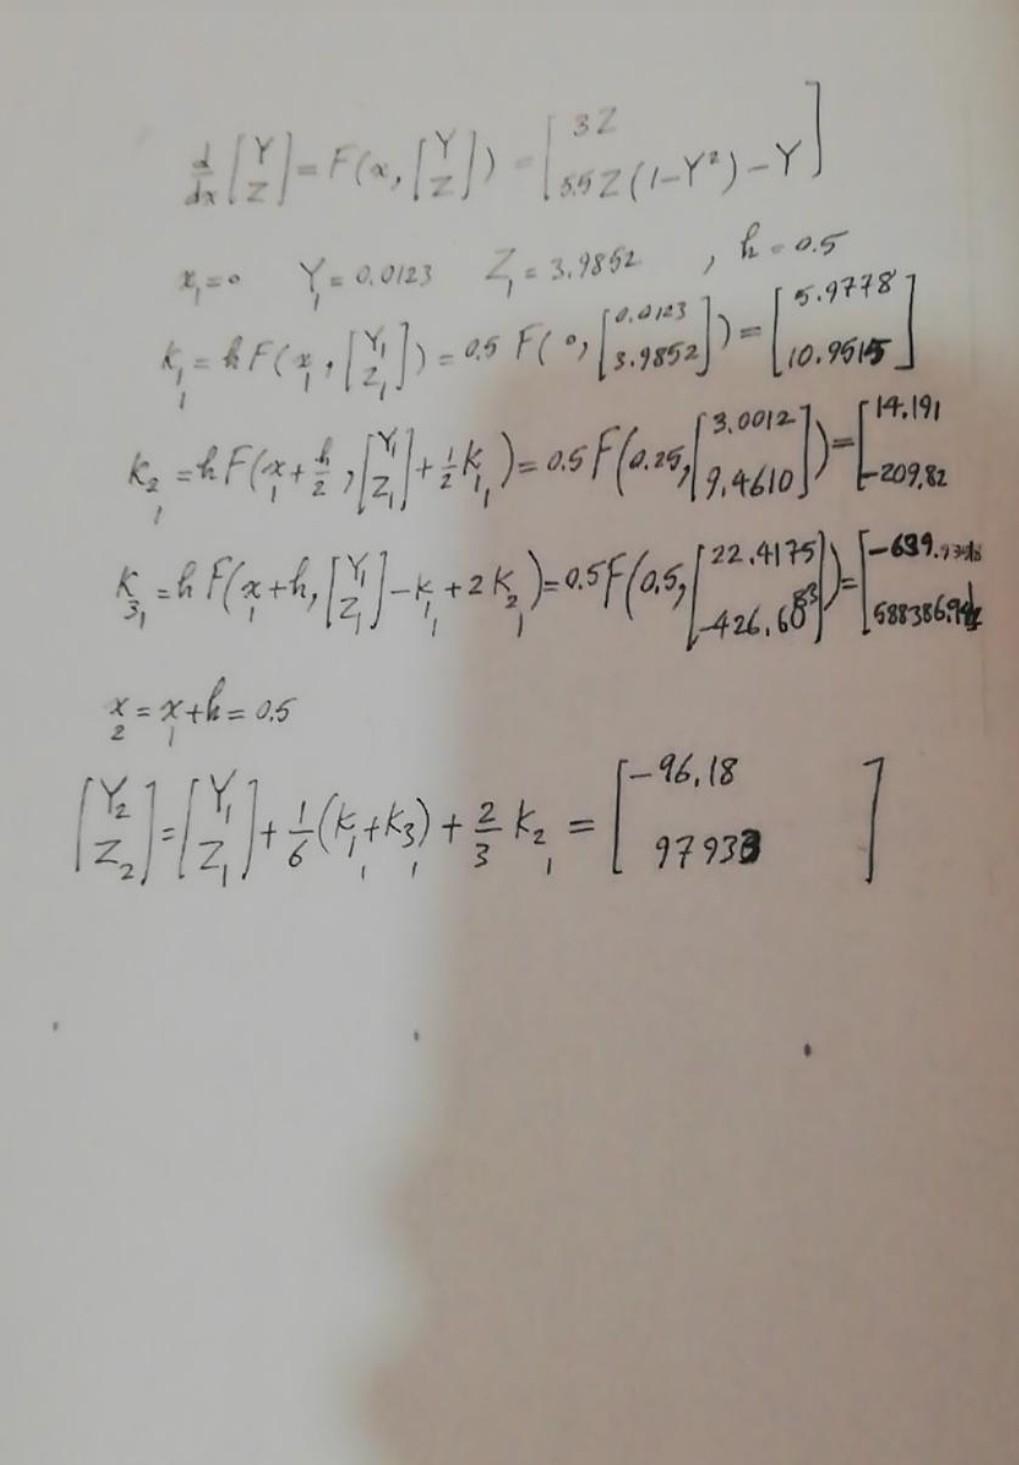 d/dx [Y Z] = F(x, [Y Z]) = [3Z 5.5Z(1-Y²)-Y]
x₁=0 Y₁=0.0123 Z₁=3.9852 , h=0.5
K₁₁ = hF(x₁, [Y₁ Z₁]) = 0.5 F(0, [0.0123 3.9852]) = [5.9778 10.9515]
K₂₁ = hF(x₁+h/2, [Y₁ Z₁]+½K₁₁) = 0.5F(0.25, [3.0012 9.4610]) = [14.191 -209.82]
K₃₁ = hF(x₁+h, [Y₁ Z₁]-K₁₁+2K₂₁) = 0.5F(0.5, [22.4175 -426.6083]) = [
x₂ = x₁+h = 0.5
[Y₂ Z₂] = [Y₁ Z₁] + 1/6(K₁₁+K₃₁) + 2/3 K₂₁ = [-96.18 97933]